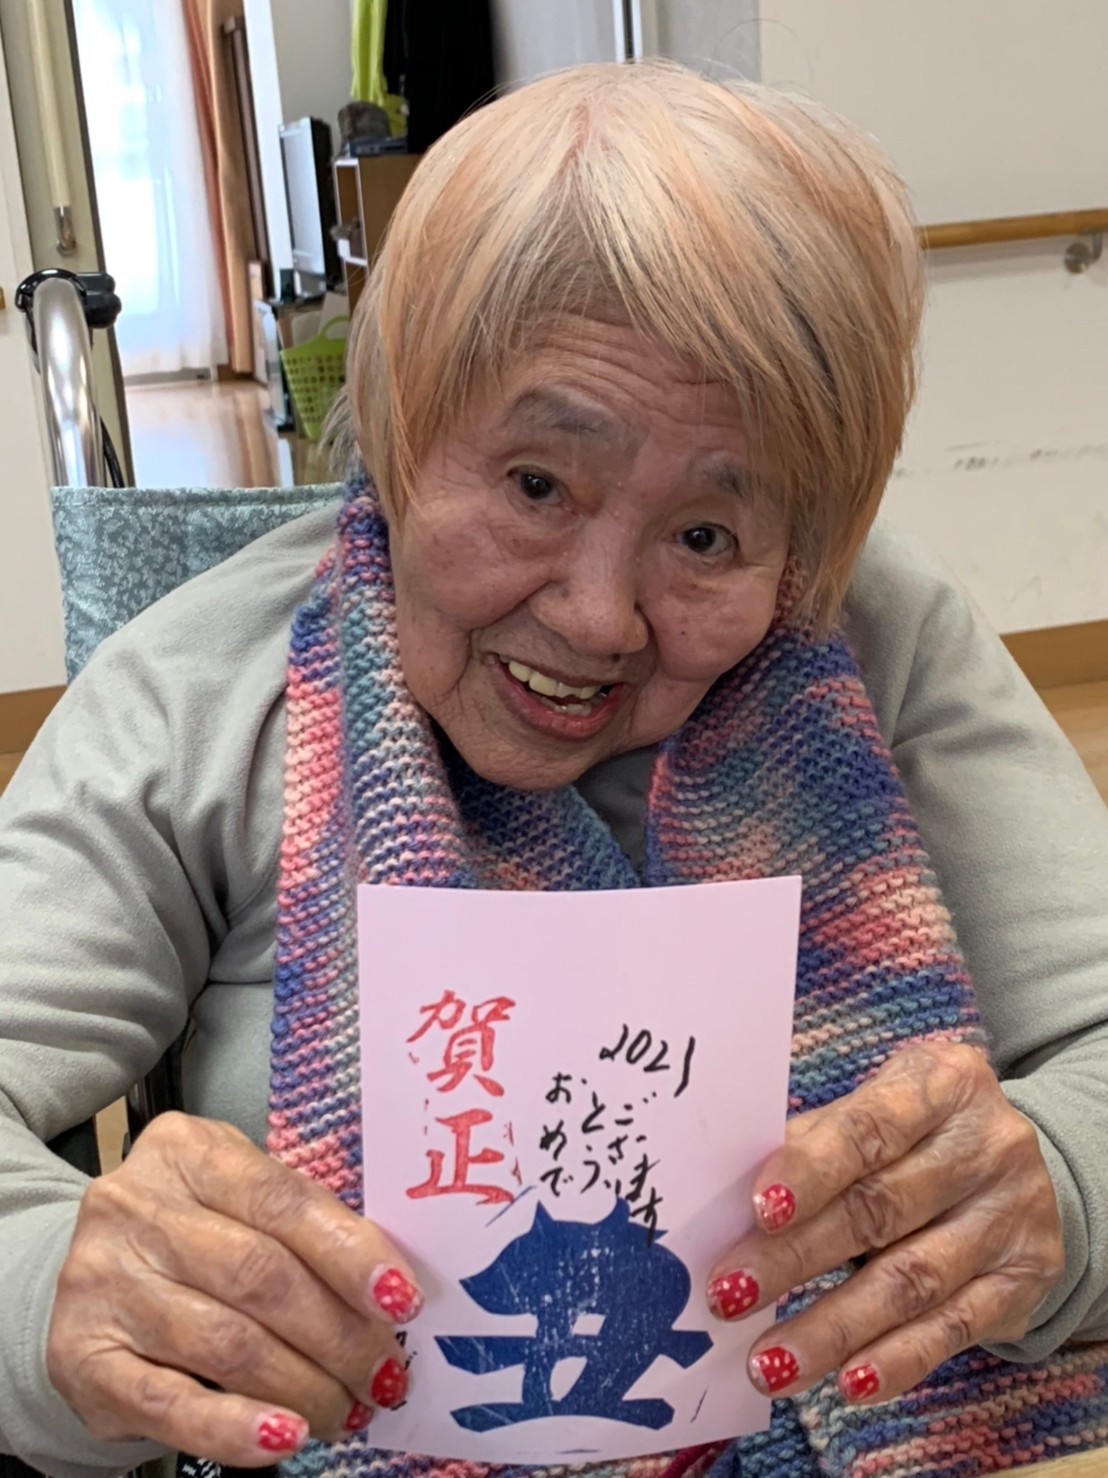 賀正
2021
おめで
とう
ございます
丑